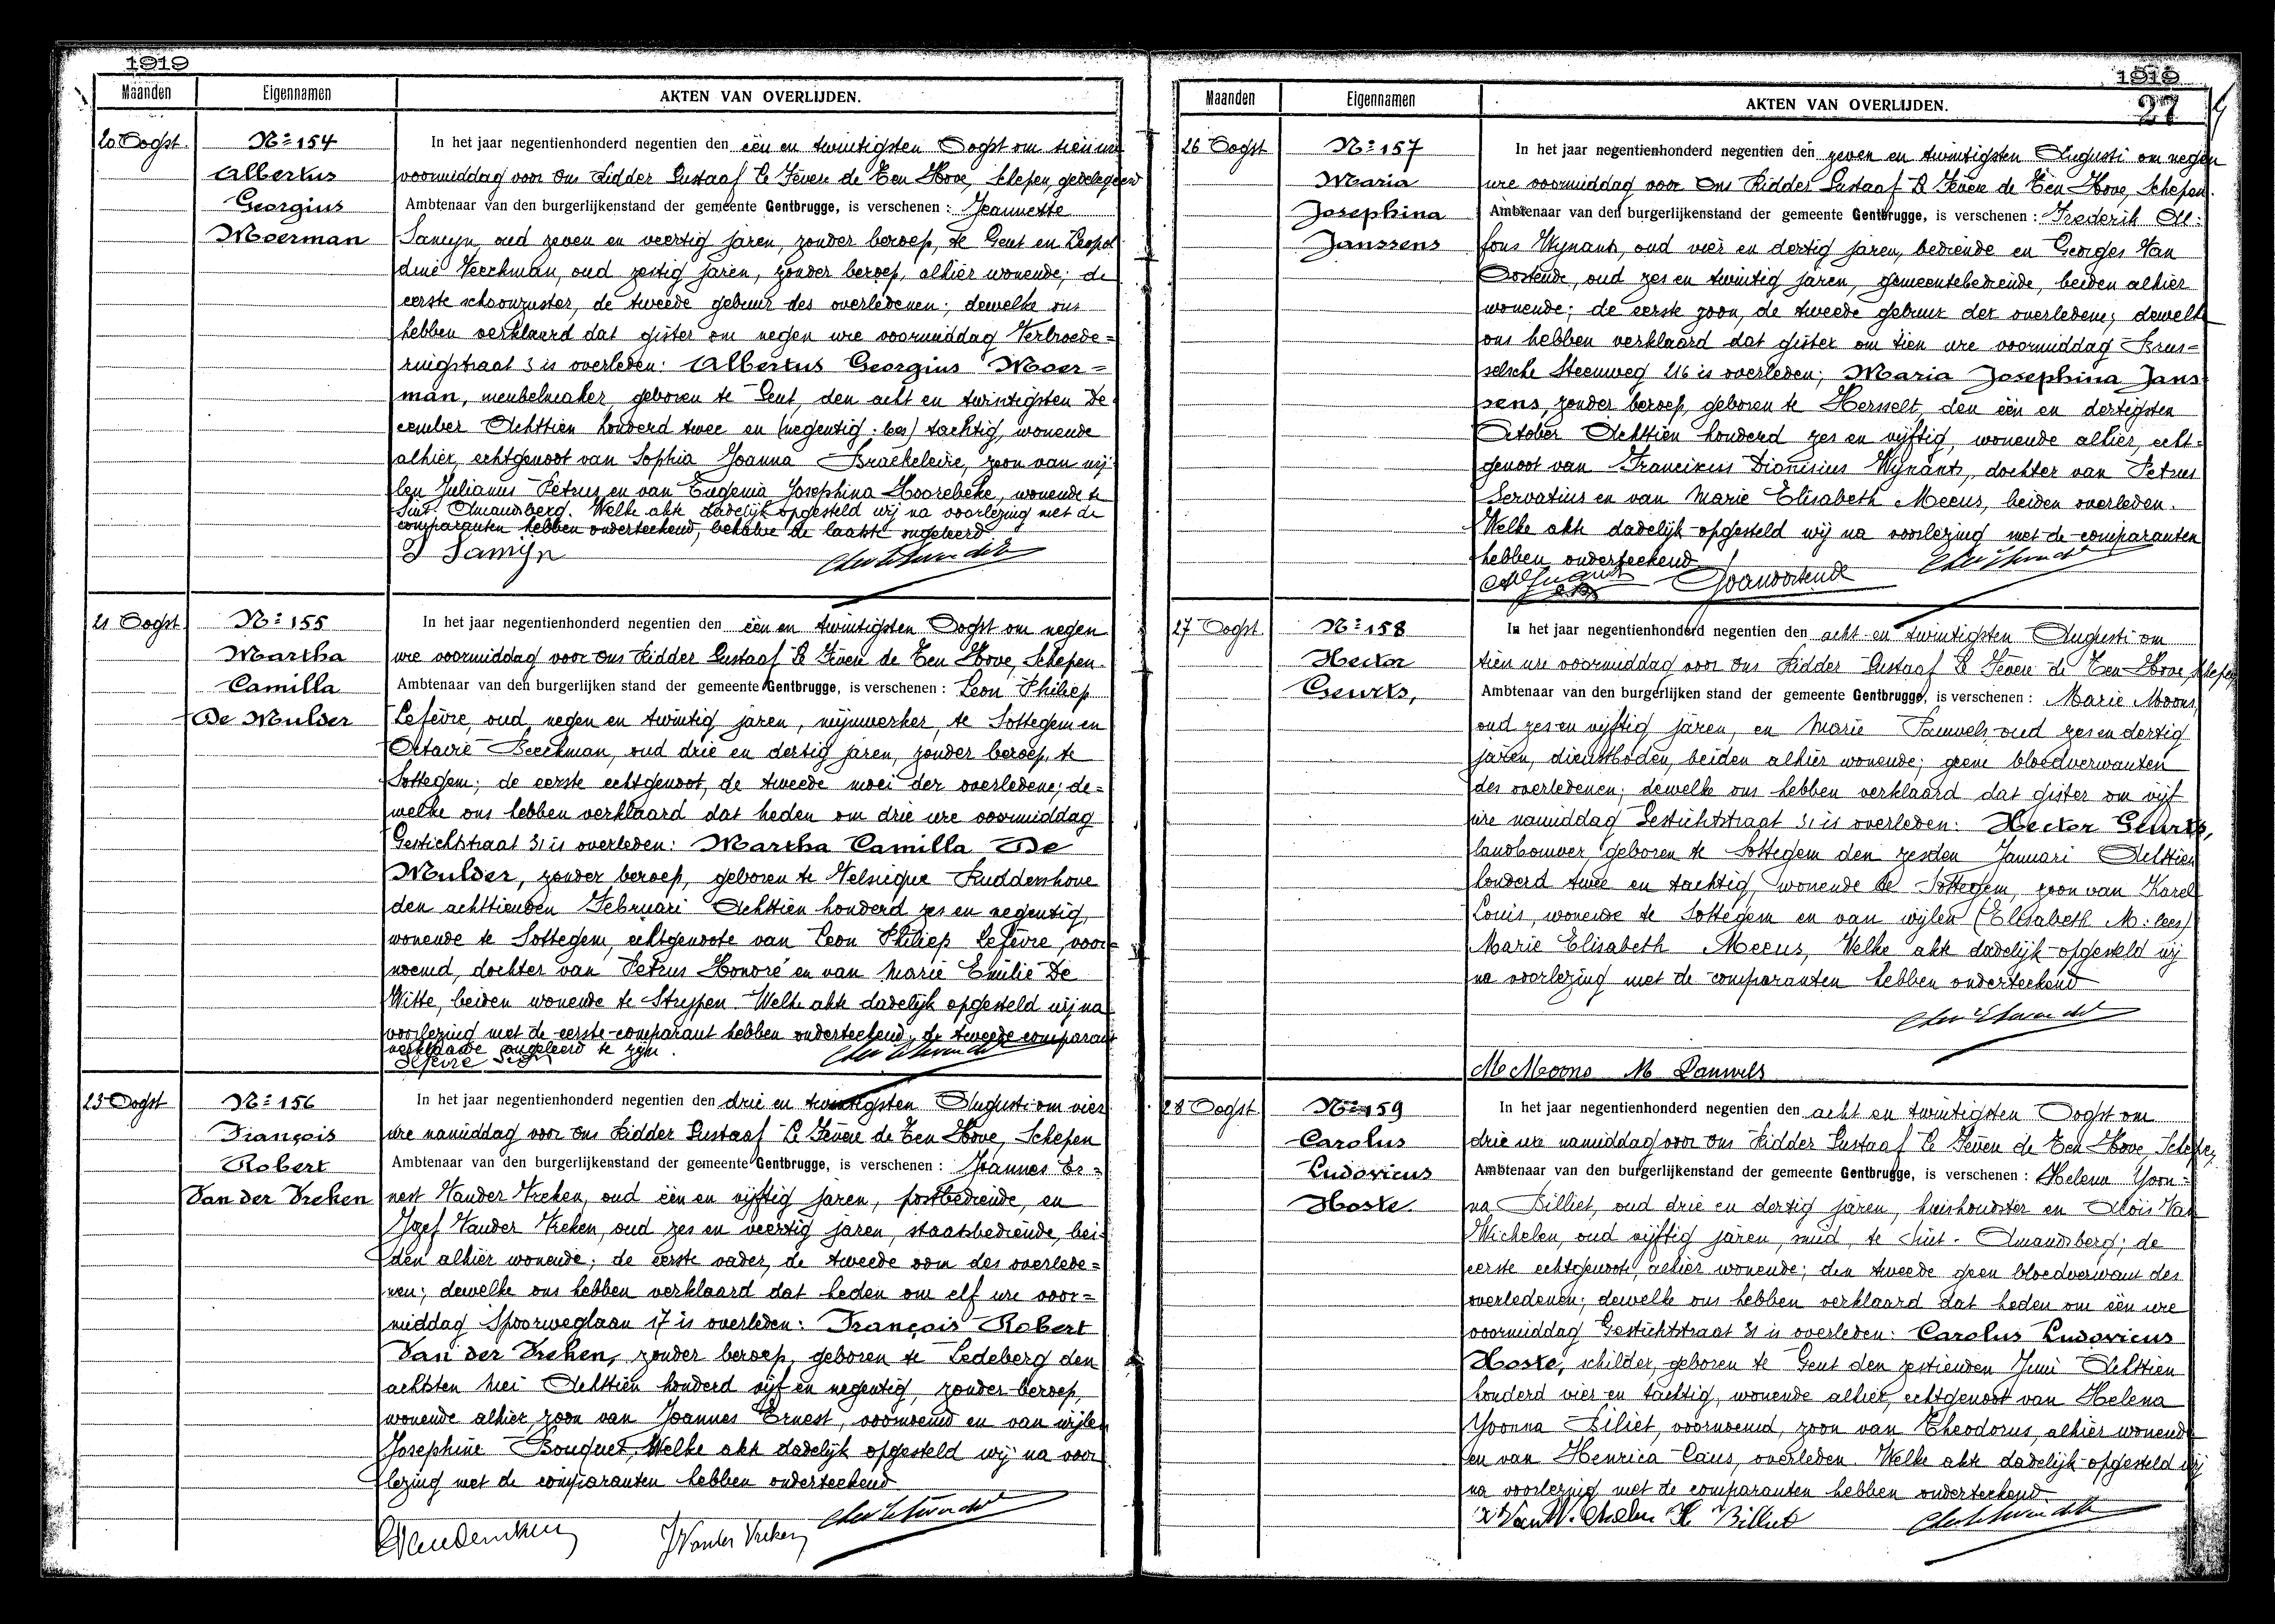 1919
Maanden
Eigennamen
AKTEN VAN OVERLIJDEN.
20 Oogst
Nº 154
Albertus
Georgius
Moerman
In het jaar negentienhonderd negentien den één en twintigsten Oogst om tien ure
voormiddag voor Ons Ridder Gustaaf Le Fèvere de Ten Hove, Schepen, gedelegeerd
Ambtenaar van den burgerlijkenstand der gemeente Gentbrugge, is verschenen : Jeannette
Samyn, oud zeven en veertig jaren, zonder beroep, te Gent en Leopol
dine Veeckman, oud zestig jaren, zonder beroep, alhier wonende; de
eerste schoonzuster, de tweede gebuur des overledenen; dewelke ons
hebben verklaard dat gister om negen ure voormiddag Verbroede=
ringstraat 3 is overleden: Albertus Georgius Moer=
man, meubelmaker, geboren te Gent, den acht en twintigsten De
cember Achttien honderd twee en (negentig : lees) tachtig, wonende
alhier, echtgenoot van Sophia Joanna Braekeleire, zoon van wij
len Julianus Petrus en van Eugenia Josephina Hoorebeke, wonende te
Sint. Amandsberg. Welke akte dadelijk opgesteld wij na voorlezing met de
comparanten hebben onderteekend, behalve de laatste ongeleerd
J Samijn
21 Oogst
Nº 155
Martha
Camilla
De Mulder
In het jaar negentienhonderd negentien den één en twintigsten Oogst om negen
ure voormiddag voor Ons Ridder Gustaaf Le Fèvere de Ten Hove, Schepen.
Ambtenaar van den burgerlijken stand der gemeente Gentbrugge, is verschenen : Leon Philiep
Lefèvre, oud negen en twintig jaren, mijnwerker, te Sottegem en
Octavie Beeckman, oud drie en dertig jaren, zonder beroep, te
Sottegem; de eerste echtgenoot, de tweede moei der overledene; de=
welke ons hebben verklaard dat heden om drie ure voormiddag
Gestichtstraat 31 is overleden: Martha Camilla De
Mulder, zonder beroep, geboren te Velsique Ruddershove
den achttienden Februari Achttien honderd zes en negentig,
wonende te Sottegem, echtgenoote van Leon Philiep Lefèvre, voor=
noemd, dochter van Petrus Honoré en van Marie Emilie De
Witte, beiden wonende te Strypen. Welke akte dadelijk opgesteld wij na
voorlezing met de eerste comparant hebben onderteekend, de tweede comparant
verklaarde ongeleerd te zijn.
Lefèvre
23 Oogst
Nº 156
François
Robert
Van der Vreken
In het jaar negentienhonderd negentien den drie en twintigsten Augusti om vier
ure namiddag voor Ons Ridder Gustaaf Le Fèvere de Ten Hove, Schepen
Ambtenaar van den burgerlijkenstand der gemeente Gentbrugge, is verschenen : Joannes Er=
nest Vander Vreken, oud één en vijftig jaren, postbediende, en
Jozef Vander Vreken, oud zes en veertig jaren, staatsbediende, bei=
den alhier wonende; de eerste vader, de tweede oom des overlede=
nen; dewelke ons hebben verklaard dat heden om elf ure voor=
middag Spoorweglaan 17 is overleden: François Robert
Van der Vreken, zonder beroep, geboren te Ledeberg den
achtsten Mei Achttien honderd vijf en negentig, zonder beroep,
wonende alhier, zoon van Joannes Ernest, voornoemd en van wijlen
Josephine Bouquet, Welke akte dadelijk opgesteld wij na voor
lezing met de comparanten hebben onderteekend
J Vander Vreken
1919
27
Maanden
Eigennamen
AKTEN VAN OVERLIJDEN.
26 Oogst
Nº 157
Maria
Josephina
Janssens
In het jaar negentienhonderd negentien den zeven en twintigsten Augusti om negen
ure voormiddag voor Ons Ridder Gustaaf Le Fèvere de Ten Hove, Schepen.
Ambtenaar van den burgerlijkenstand der gemeente Gentbrugge, is verschenen : Frederik Al:
fons Wynants, oud vier en dertig jaren, bediende en Georges Van
Oostende, oud zes en twintig jaren, gemeentebediende, beiden alhier
wonende; de eerste zoon, de tweede gebuur der overledene; dewelke
ons hebben verklaard dat gister om tien ure voormiddag Brus=
selsche Steenweg 216 is overleden; Maria Josephina Jans
sens, zonder beroep, geboren te Hersselt, den één en dertigsten
October Achttien honderd zes en vijftig, wonende alhier, echt=
genoot van Franciscus Dionisius Wynants, dochter van Petrus
Servatius en van Marie Elisabeth Meeus, beiden overleden.
Welke akte dadelijk opgesteld wij na voorlezing met de comparanten
hebben onderteekend
GVanoostende
27 Oogst
Nº 158
Hector
Geurts,
In het jaar negentienhonderd negentien den acht en twintigsten Augusti om
tien ure voormiddag voor ons Ridder Gustaaf Le Fèvere de Ten Hove, Schepen
Ambtenaar van den burgerlijken stand der gemeente Gentbrugge, is verschenen : Marie Moons,
oud zes en vijftig jaren, en Marie Pauwels oud zes en dertig
jaren, dienstboden, beiden alhier wonende; geene bloedverwanten
des overledenen; dewelke ons hebben verklaard dat gister om vijf
ure namiddag Gestichtstraat 31 is overleden: Hector Geurts,
landbouwer, geboren te Sottegem den zesden Januari Achttien
honderd twee en tachtig, wonende te Sottegem, zoon van Karel
Louis, wonende te Sottegem en van wijlen (Elisabeth M: lees)
Marie Elisabeth Meeus, Welke akte dadelijk opgesteld wij
na voorlezing met de comparanten hebben onderteekend
M Moons M Pauwels
28 Oogst
Nº 159
Carolus
Ludovicus
Hoste.
In het jaar negentienhonderd negentien den acht en twintigsten Oogst om
drie ure namiddag voor Ons Ridder Gustaaf Le Fèvere de Ten Hove, Schepen,
Ambtenaar van den burgerlijkenstand der gemeente Gentbrugge, is verschenen : Helena Yvon=
na Billiet, oud drie en dertig jaren, huishoudster en Aloïs Van
Wichelen, oud vijftig jaren, smid, te Sint. Amandsberg; de
eerste echtgenoote, alhier wonende; den tweede geen bloedverwant des
overledenen; dewelke ons hebben verklaard dat heden om één ure
voormiddag Gestichtstraat 31 is overleden: Carolus Ludovicus
Hoste, schilder, geboren te Gent den zestienden Juni Achttien
honderd vier en tachtig, wonende alhier, echtgenoot van Helena
Yvonna Biliet, voornoemd, zoon van Theodorus, alhier wonende
en van Henrica Caus, overleden. Welke akte dadelijk opgesteld wij
na voorlezing met de comparanten hebben onderteekend.
H Billiet